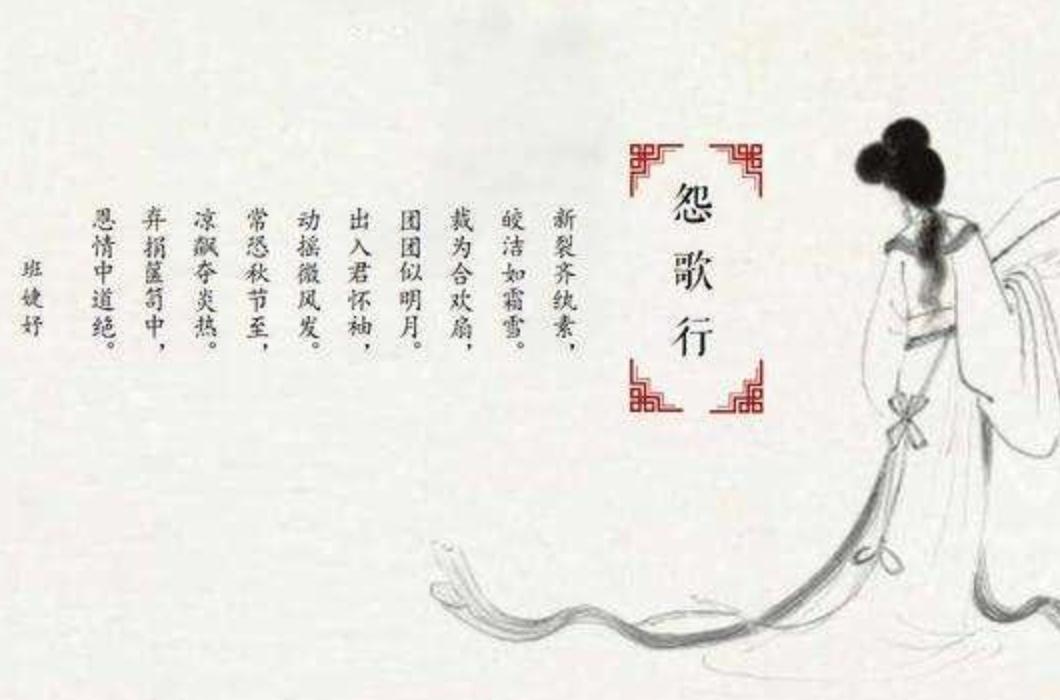 怨歌行
新裂齐纨素，
皎洁如霜雪。
裁为合欢扇，
团团似明月。
出入君怀袖，
动摇微风发。
常恐秋节至，
凉飙夺炎热。
弃捐箧笥中，
恩情中道绝。
班婕妤